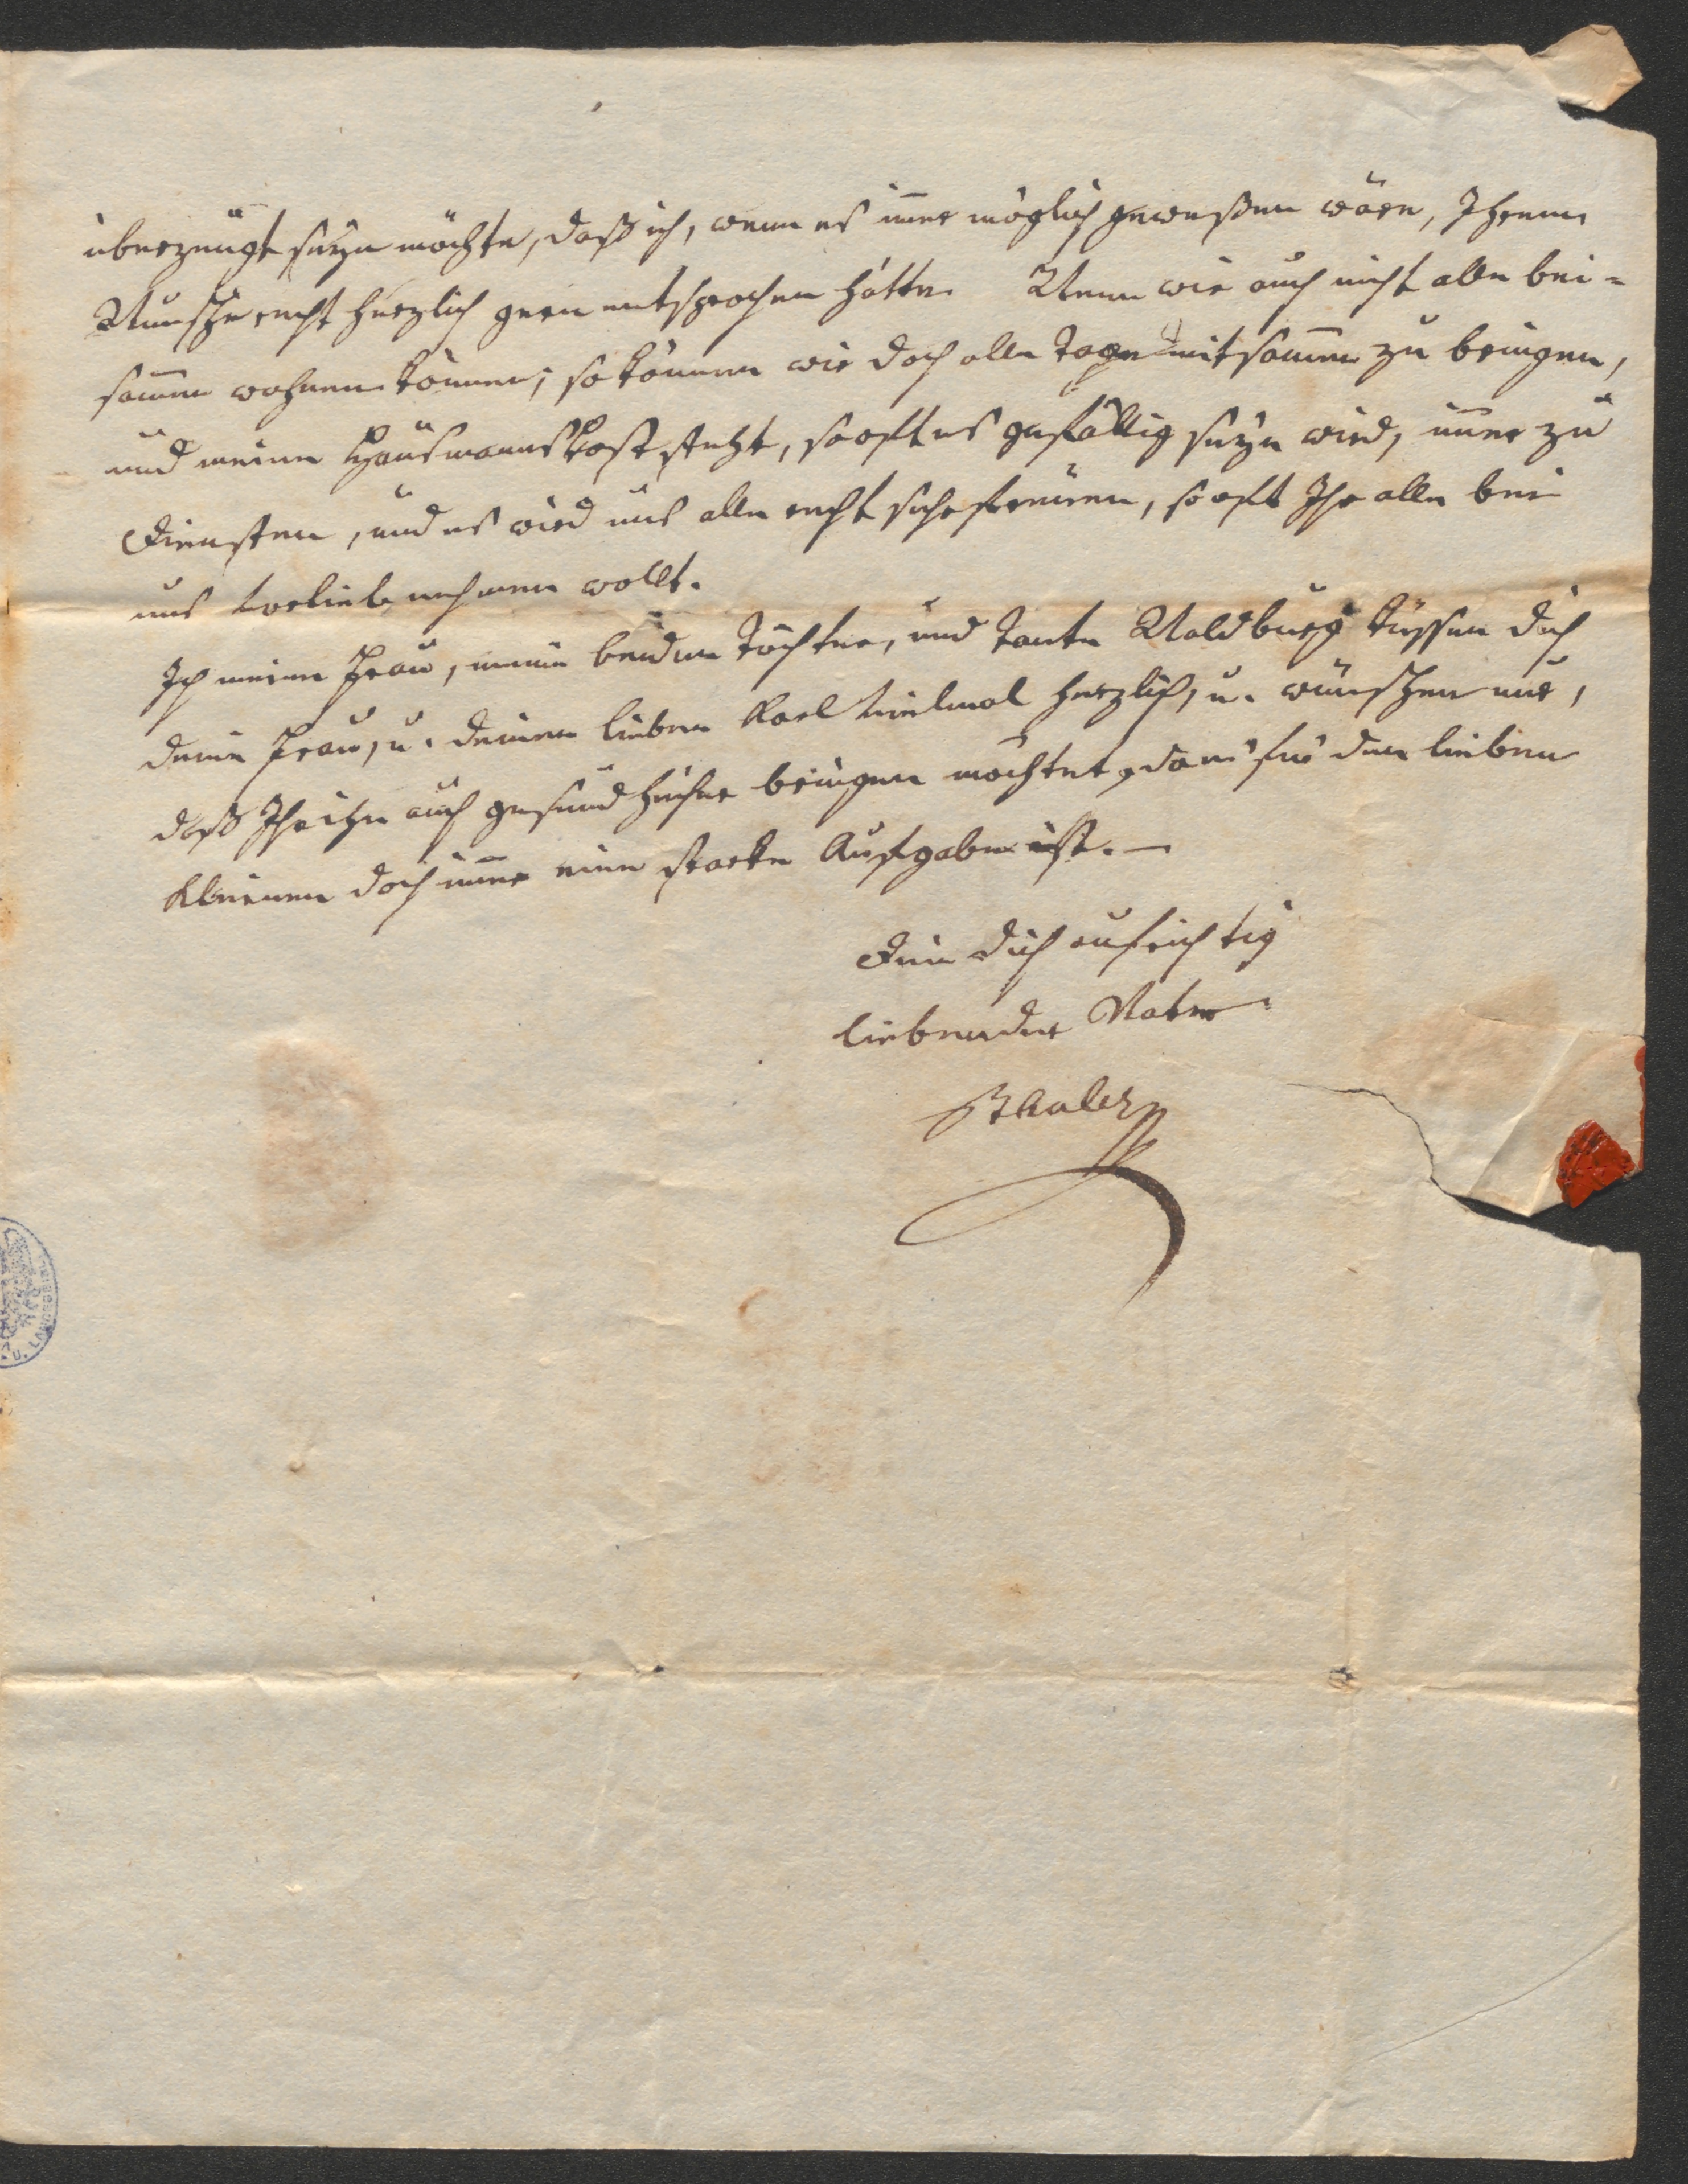 überzeugt seyn möchte, daß ich, wenn es im̅er möglich geweßen wäre, Ihrem
Wunsche recht herzlich gern entsprochen hätte. Wenn wir auch nicht alle bei-
sam̅en wohnen können; so können wir doch alle Tage mitsam̅en zu bringen,
und meine Hausmannskost steht, so oft es gefällig seyn wird, im̅er zu
Diensten, und es wird uns alle recht sehr freuen, so oft Ihr alle bei
uns vorlieb nehmen wollt.
Ich meine Frau, meine beiden Töchter, und Tante Waldburg küssen dich
deine Frau, u. deinen lieben Karl vielmal herzlich, u. wünschen nur,
daß Ihr ihn auch gesund hieher bringen möchtet, da es für den lieben
Kleinen doch im̅er eine starke Aufgabe ist. —
Dein dich aufrichtig
liebender Vater